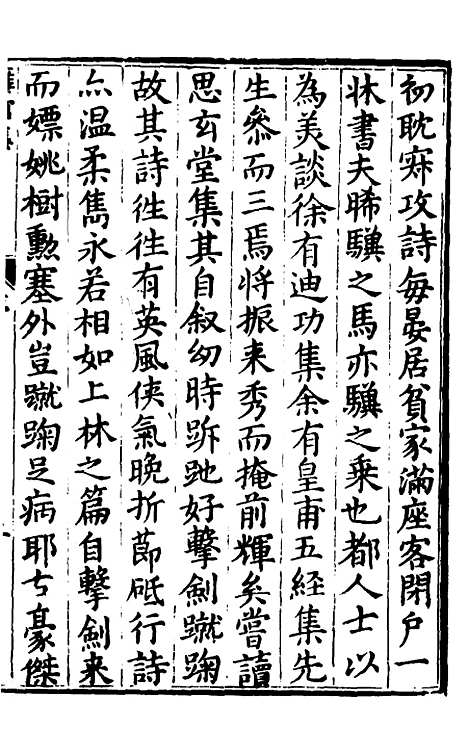 初耽寂攻詩每晏居貧家滿座客閉户一
牀書夫晞驥之馬亦驥之乗也都人士以
為美談徐有迪功集余有皇甫五經集先
生叅而三焉將振来秀而掩前輝矣嘗讀
思玄堂集其自叙㓜時跅跎好擊劍蹴踘
故其詩徃徃有英風俠氣晚折莭砥行詩
亦温柔雋永若相如上林之篇自擊劍来
而嫖姚樹勳塞外豈蹴踘足病耶古豪傑